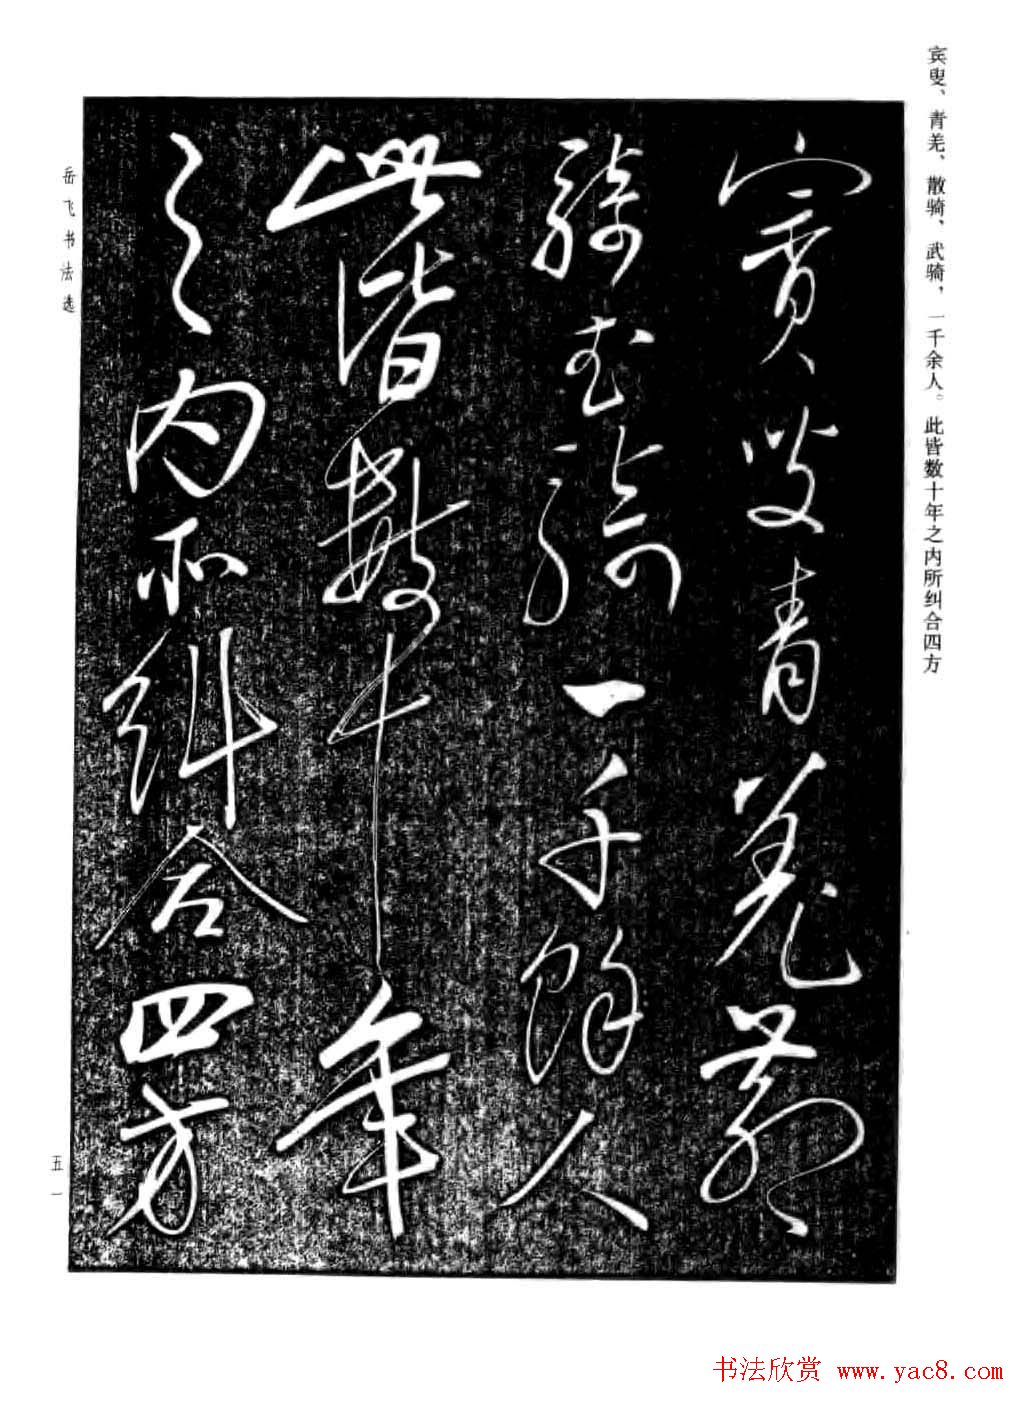 宾叟、青羌、散骑、武骑，一千余人。此皆数十年之内所纠合四方
賓叟青羌散
騎武騎一千餘人
此皆數十年
之内所糾合四方
岳飞书法选
五一
书法欣赏 www.yac8.com